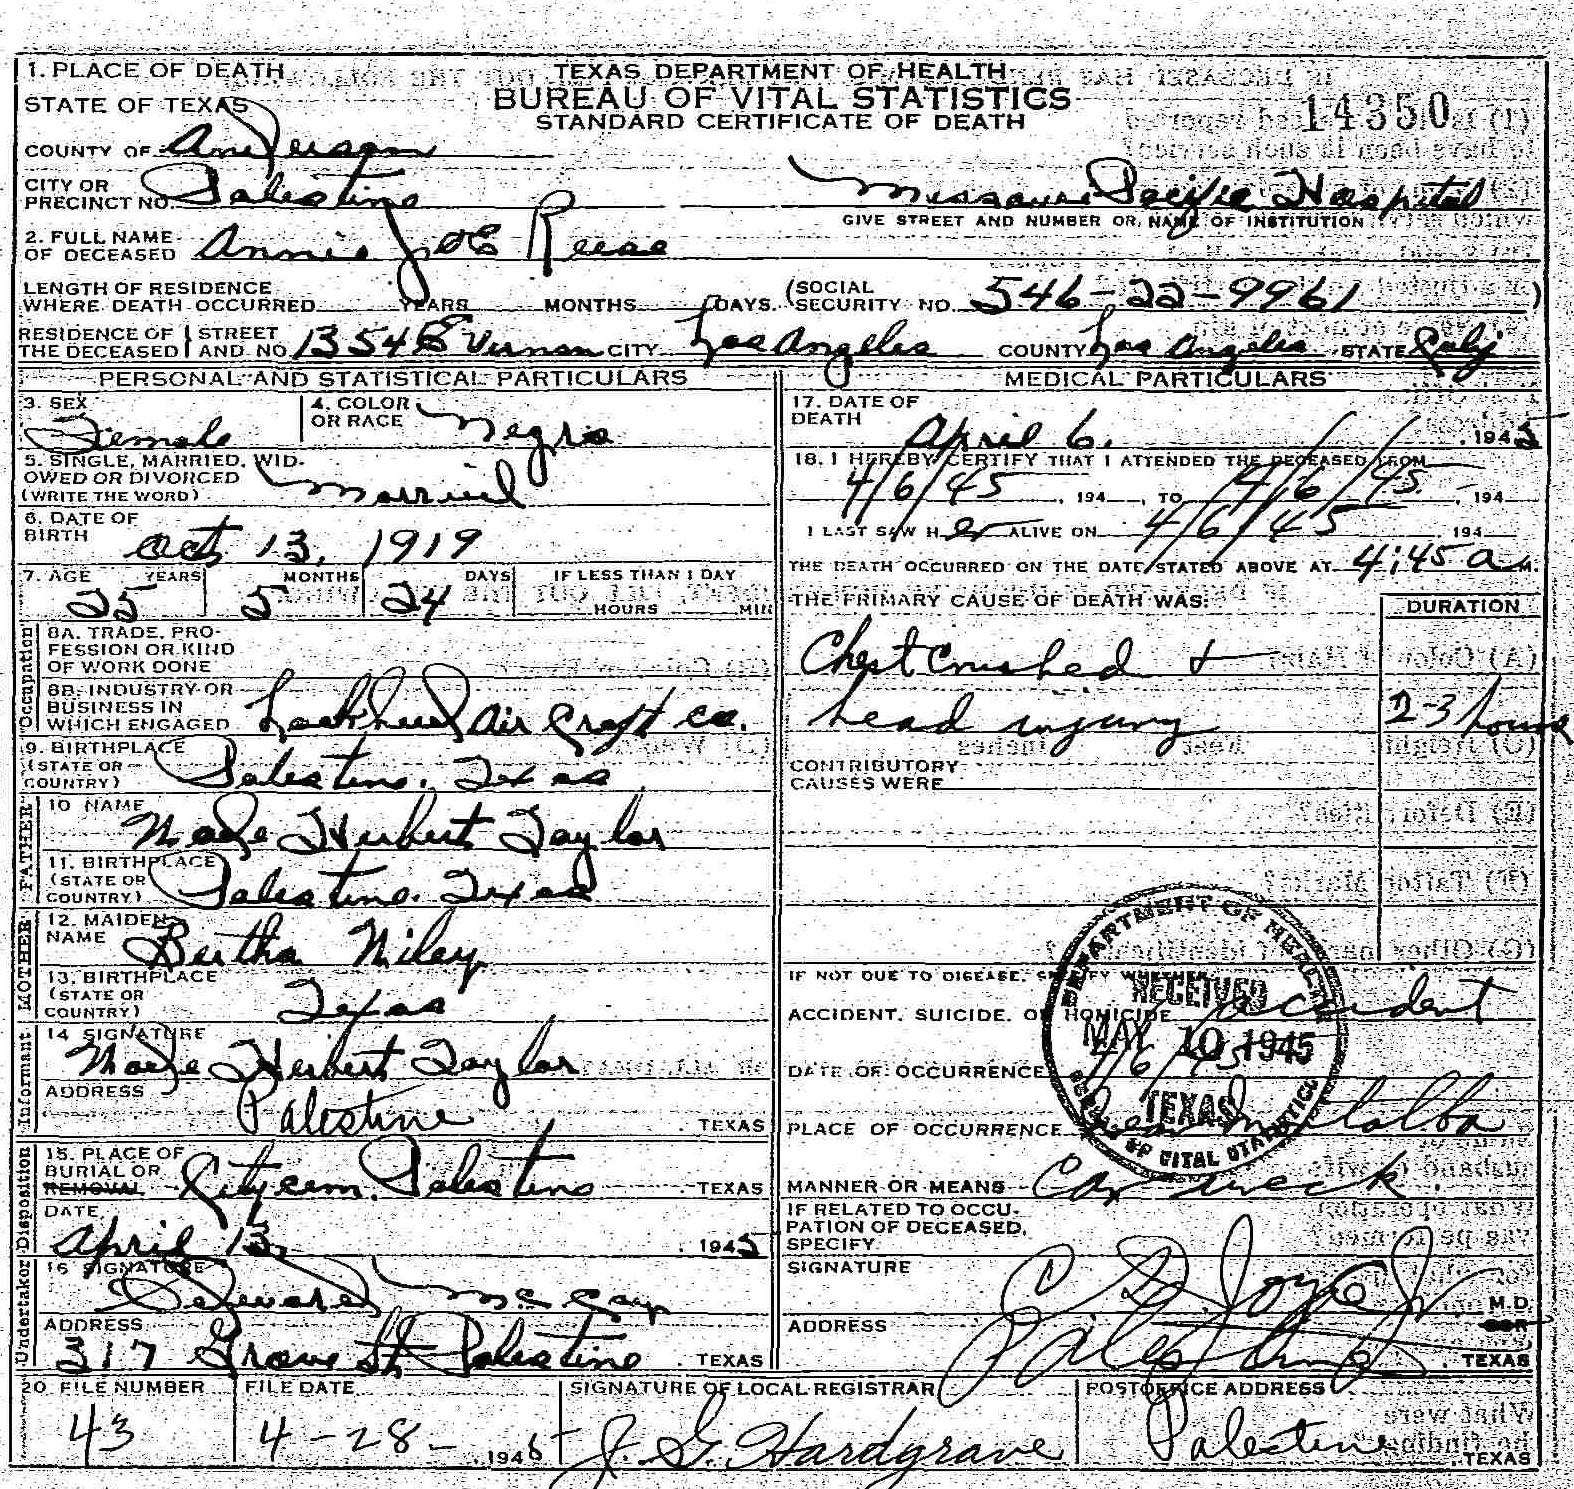 1. PLACE OF DEATH
TEXAS DEPARTMENT OF HEALTH
BUREAU OF VITAL STATISTICS
STANDARD CERTIFICATE OF DEATH
14350
STATE OF TEXAS
COUNTY OF Anderson
CITY OR PRECINCT NO. Palestine
Missouri Pacific Hospital
GIVE STREET AND NUMBER OR NAME OF INSTITUTION
2. FULL NAME OF DECEASED Annie Joe Reese
LENGTH OF RESIDENCE WHERE DEATH OCCURRED YEARS MONTHS DAYS. (SOCIAL SECURITY NO. 546-22-9961)
RESIDENCE OF THE DECEASED STREET AND NO. 1354 E Vernon CITY Los Angeles COUNTY Los Angeles STATE Calif
PERSONAL AND STATISTICAL PARTICULARS
3. SEX Female
4. COLOR OR RACE Negro
5. SINGLE, MARRIED, WIDOWED OR DIVORCED (WRITE THE WORD) Married
6. DATE OF BIRTH Oct 13, 1919
7. AGE YEARS 25 MONTHS 5 DAYS 24 IF LESS THAN 1 DAY HOURS MIN
Occupation
8A. TRADE, PROFESSION OR KIND OF WORK DONE
8B. INDUSTRY OR BUSINESS IN WHICH ENGAGED Lockheed Air Craft Co.
9. BIRTHPLACE (STATE OR COUNTRY) Palestine, Texas
FATHER
10 NAME Herbert Taylor
11. BIRTHPLACE (STATE OR COUNTRY) Palestine, Texas
MOTHER
12. MAIDEN NAME Bertha Wiley
13. BIRTHPLACE (STATE OR COUNTRY) Texas
Informant
14 SIGNATURE Herbert Taylor
ADDRESS Palestine, TEXAS
Disposition
15. PLACE OF BURIAL OR REMOVAL City cem. Palestine, TEXAS
DATE April 13, 1945
Undertaker
16 SIGNATURE McCoy
ADDRESS 317 Grove St Palestine, TEXAS
MEDICAL PARTICULARS
17. DATE OF DEATH April 6, 1945
18. I HEREBY CERTIFY THAT I ATTENDED THE DECEASED FROM
4/6/45, 194 , TO 4/6/45, 194
I LAST SAW HER ALIVE ON 4/6/45 194
THE DEATH OCCURRED ON THE DATE STATED ABOVE AT 4:45 a M.
THE PRIMARY CAUSE OF DEATH WAS: DURATION
Chest crushed +
head injury 2-3 hours
CONTRIBUTORY CAUSES WERE
IF NOT DUE TO DISEASE, SPECIFY WHETHER
ACCIDENT, SUICIDE, OR HOMICIDE accident
DATE OF OCCURRENCE 4/6/45
PLACE OF OCCURRENCE near Montalba
MANNER OR MEANS Car wreck.
IF RELATED TO OCCUPATION OF DECEASED, SPECIFY
SIGNATURE Joyce Jr M.D.
ADDRESS Palestine, TEXAS
DEPARTMENT OF HEALTH
RECEIVED
MAY 10 1945
TEXAS
BUREAU OF VITAL STATISTICS
20 FILE NUMBER 43
FILE DATE 4-28-1945
SIGNATURE OF LOCAL REGISTRAR J. G. Hardgrave
POSTOFFICE ADDRESS Palestine, TEXAS